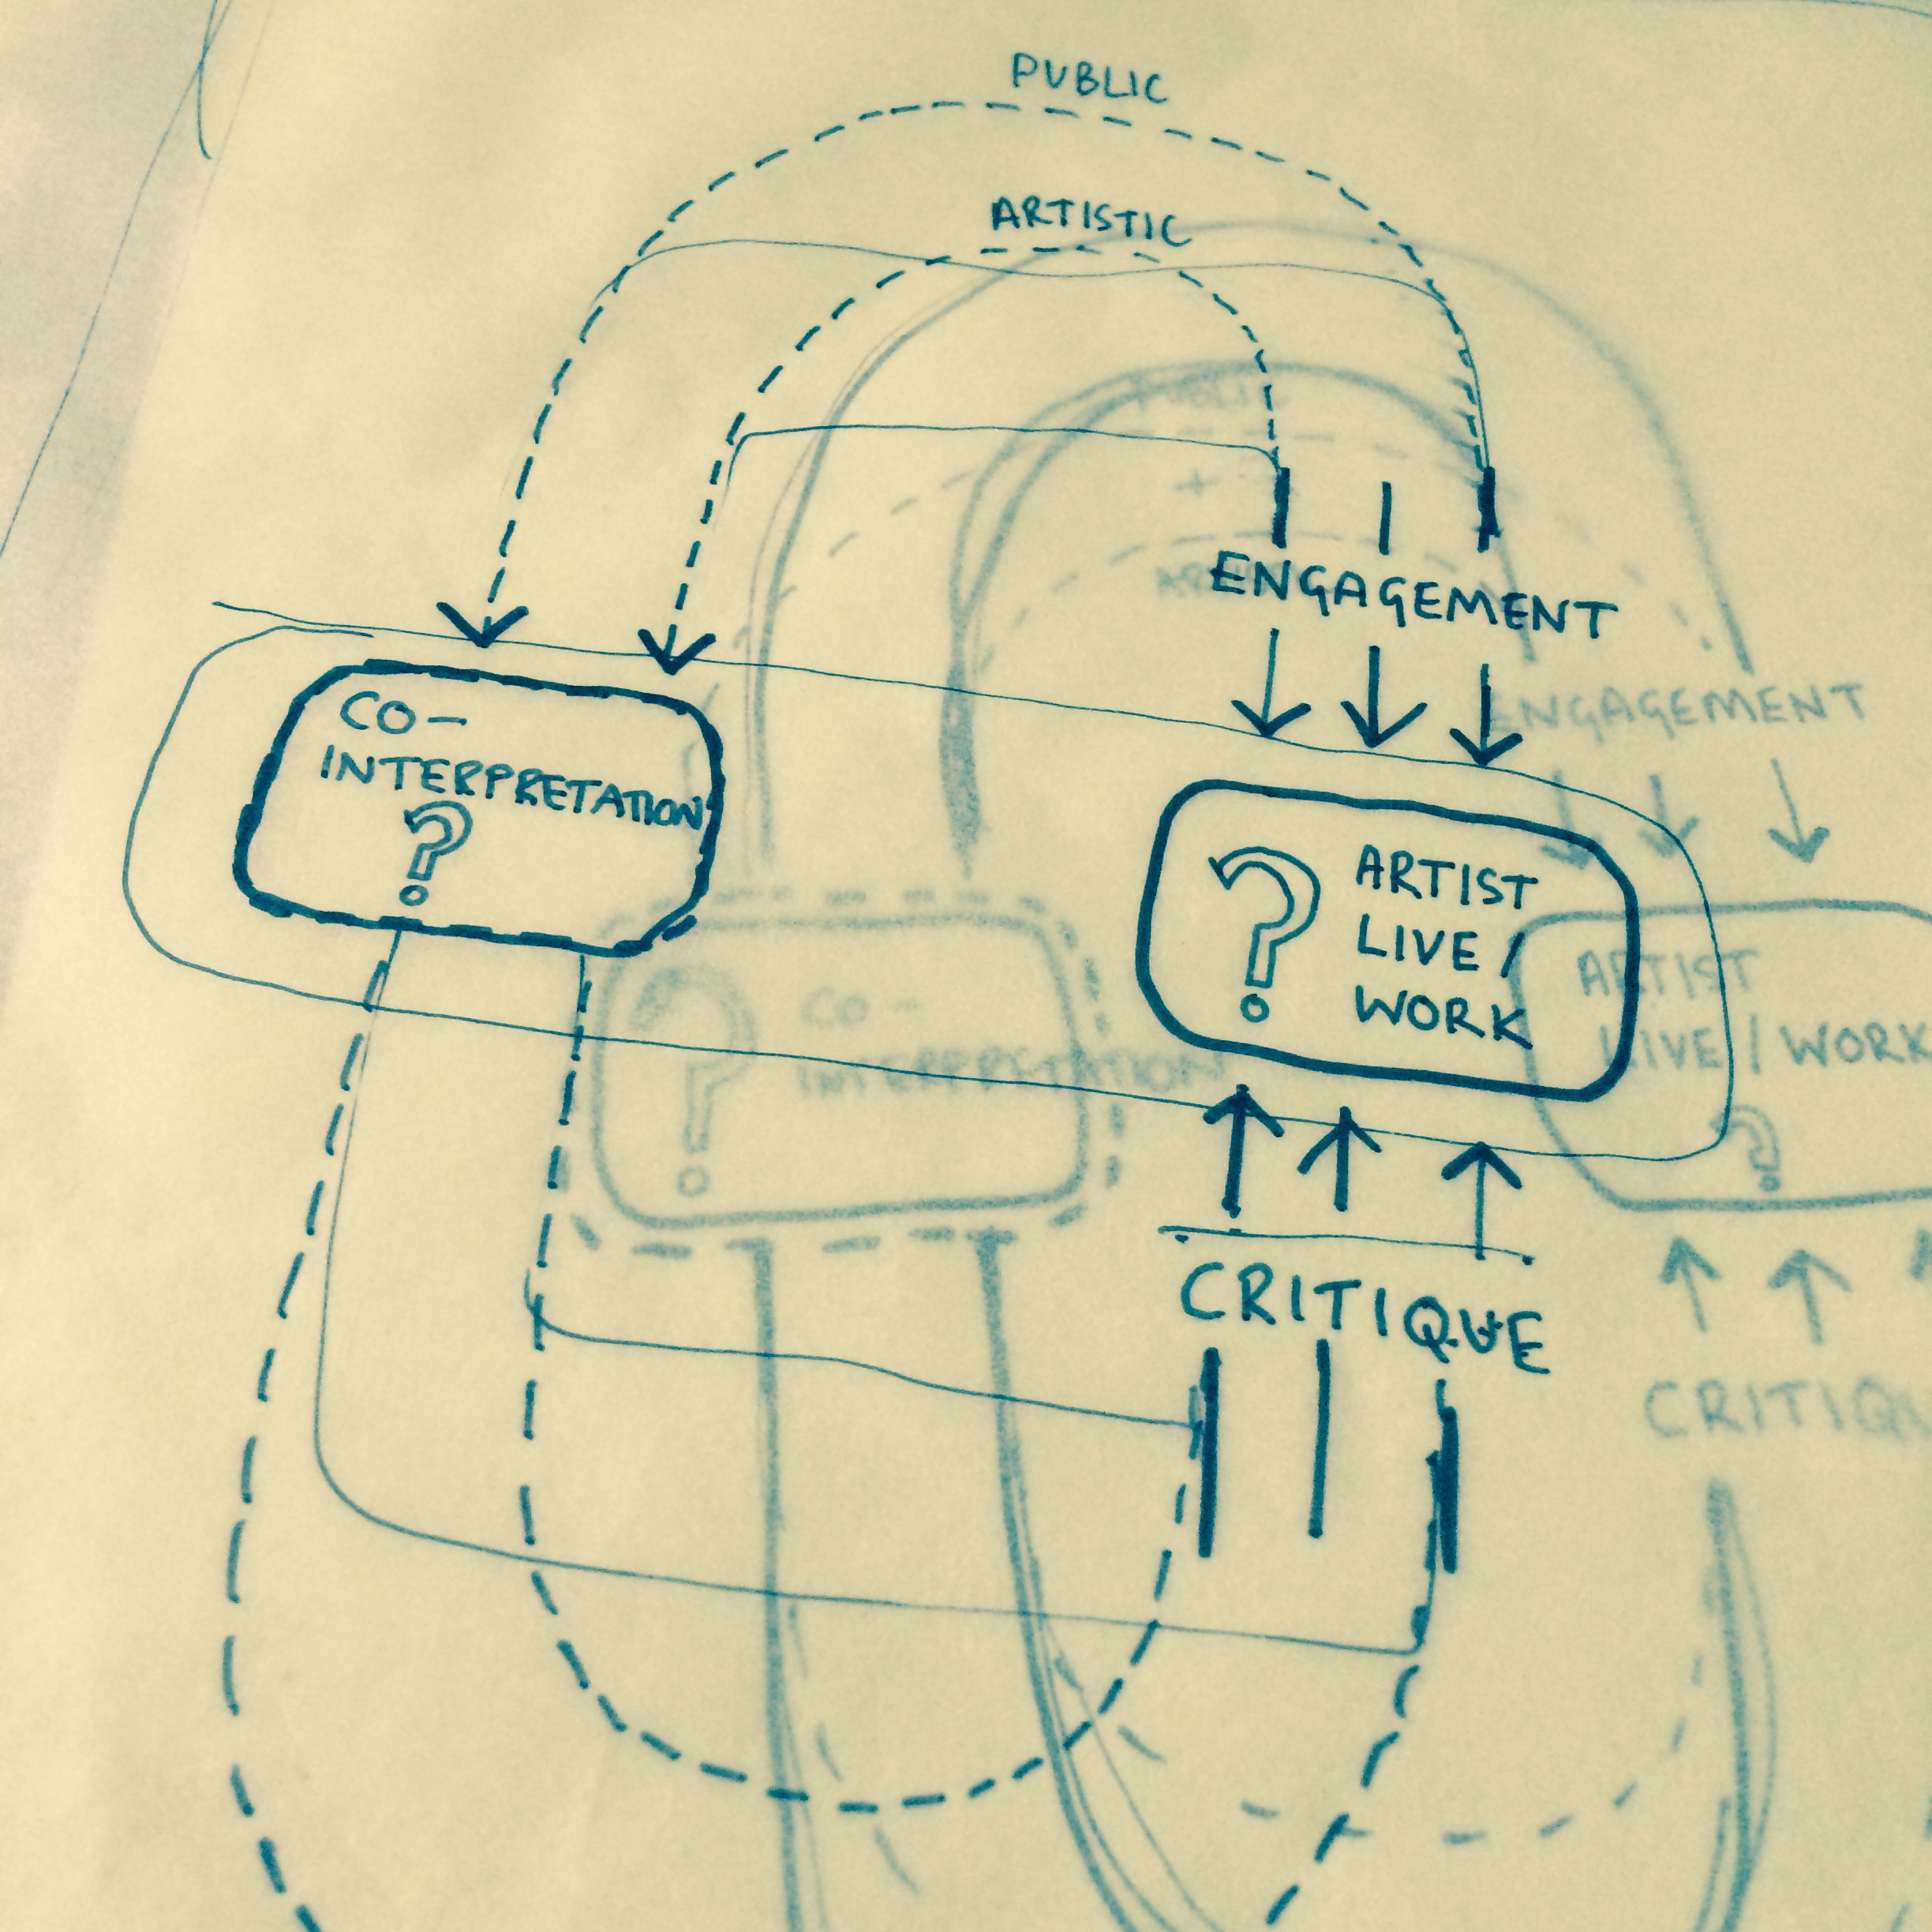 PUBLIC
ARTISTIC
ENGAGEMENT
CO-
INTERPRETATION
?
? ARTIST
LIVE /
WORK
CRITIQUE
PUBLIC
+
ENGAGEMENT
? CO-
INTERPRETATION
ARTIST
LIVE / WORK
?